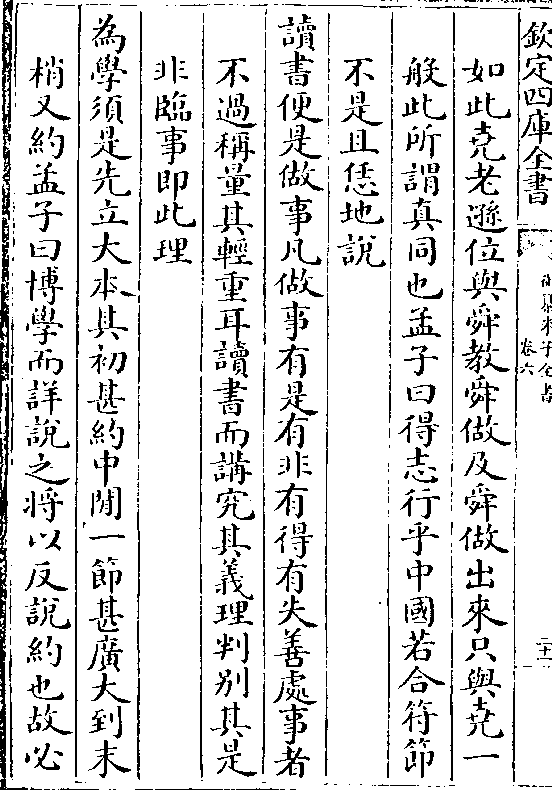 欽定四庫全書
御纂朱子全書
卷六
二十一
如此堯老遜位與舜教舜做及舜做出來只與堯一
般此所謂真同也孟子曰得志行乎中國若合符節
不是且恁地說
讀書便是做事凡做事有是有非有得有失善處事者
不過稱量其輕重耳讀書而講究其義理判别其是
非臨事即此理
為學須是先立大本其初甚約中間一節甚廣大到末
梢又約孟子曰博學而詳說之將以反說約也故必